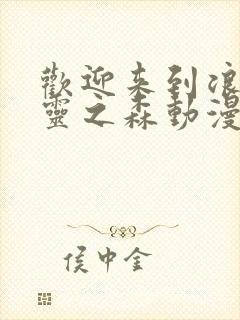 歡迎来到浪
靈之森動漫
侯中金